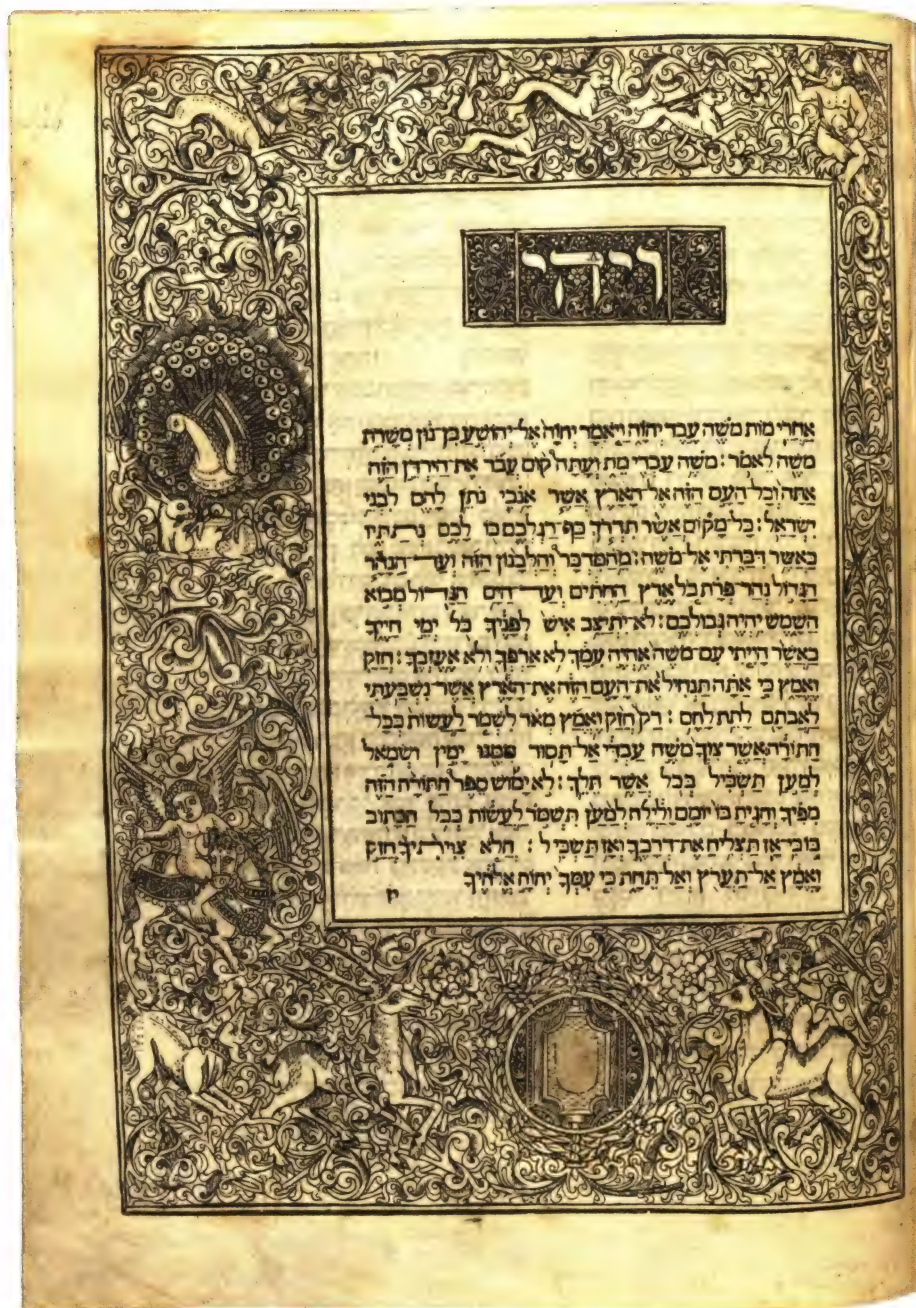 ויהי
אחרי מות משה עבד יהוה ויאמר יהוה אל־יהושע בן־נון משרת
משה לאמר: משה עבדי מת ועתה קום עבר את־הירדן הזה
אתה וכל־העם הזה אל־הארץ אשר אנכי נתן להם לבני
ישראל: כל־מקום אשר תדרך כף־רגלכם בו לכם נתתיו
כאשר דברתי אל־משה: מהמדבר והלבנון הזה ועד־הנהר
הגדול נהר־פרת כל ארץ החתים ועד־הים הגדול מבוא
השמש יהיה גבולכם: לא־יתיצב איש לפניך כל ימי חייך
כאשר הייתי עם־משה אהיה עמך לא ארפך ולא אעזבך: חזק
ואמץ כי אתה תנחיל את־העם הזה את־הארץ אשר נשבעתי
לאבתם לתת להם: רק חזק ואמץ מאד לשמר לעשות ככל־
התורה אשר צוך משה עבדי אל־תסור ממנו ימין ושמאל
למען תשכיל בכל אשר תלך: לא־ימוש ספר התורה הזה
מפיך והגית בו יומם ולילה למען תשמר לעשות ככל הכתוב
בו כי־אז תצליח את־דרכך ואז תשכיל: הלא צויתיך חזק
ואמץ אל־תערץ ואל־תחת כי עמך יהוה אלהיך